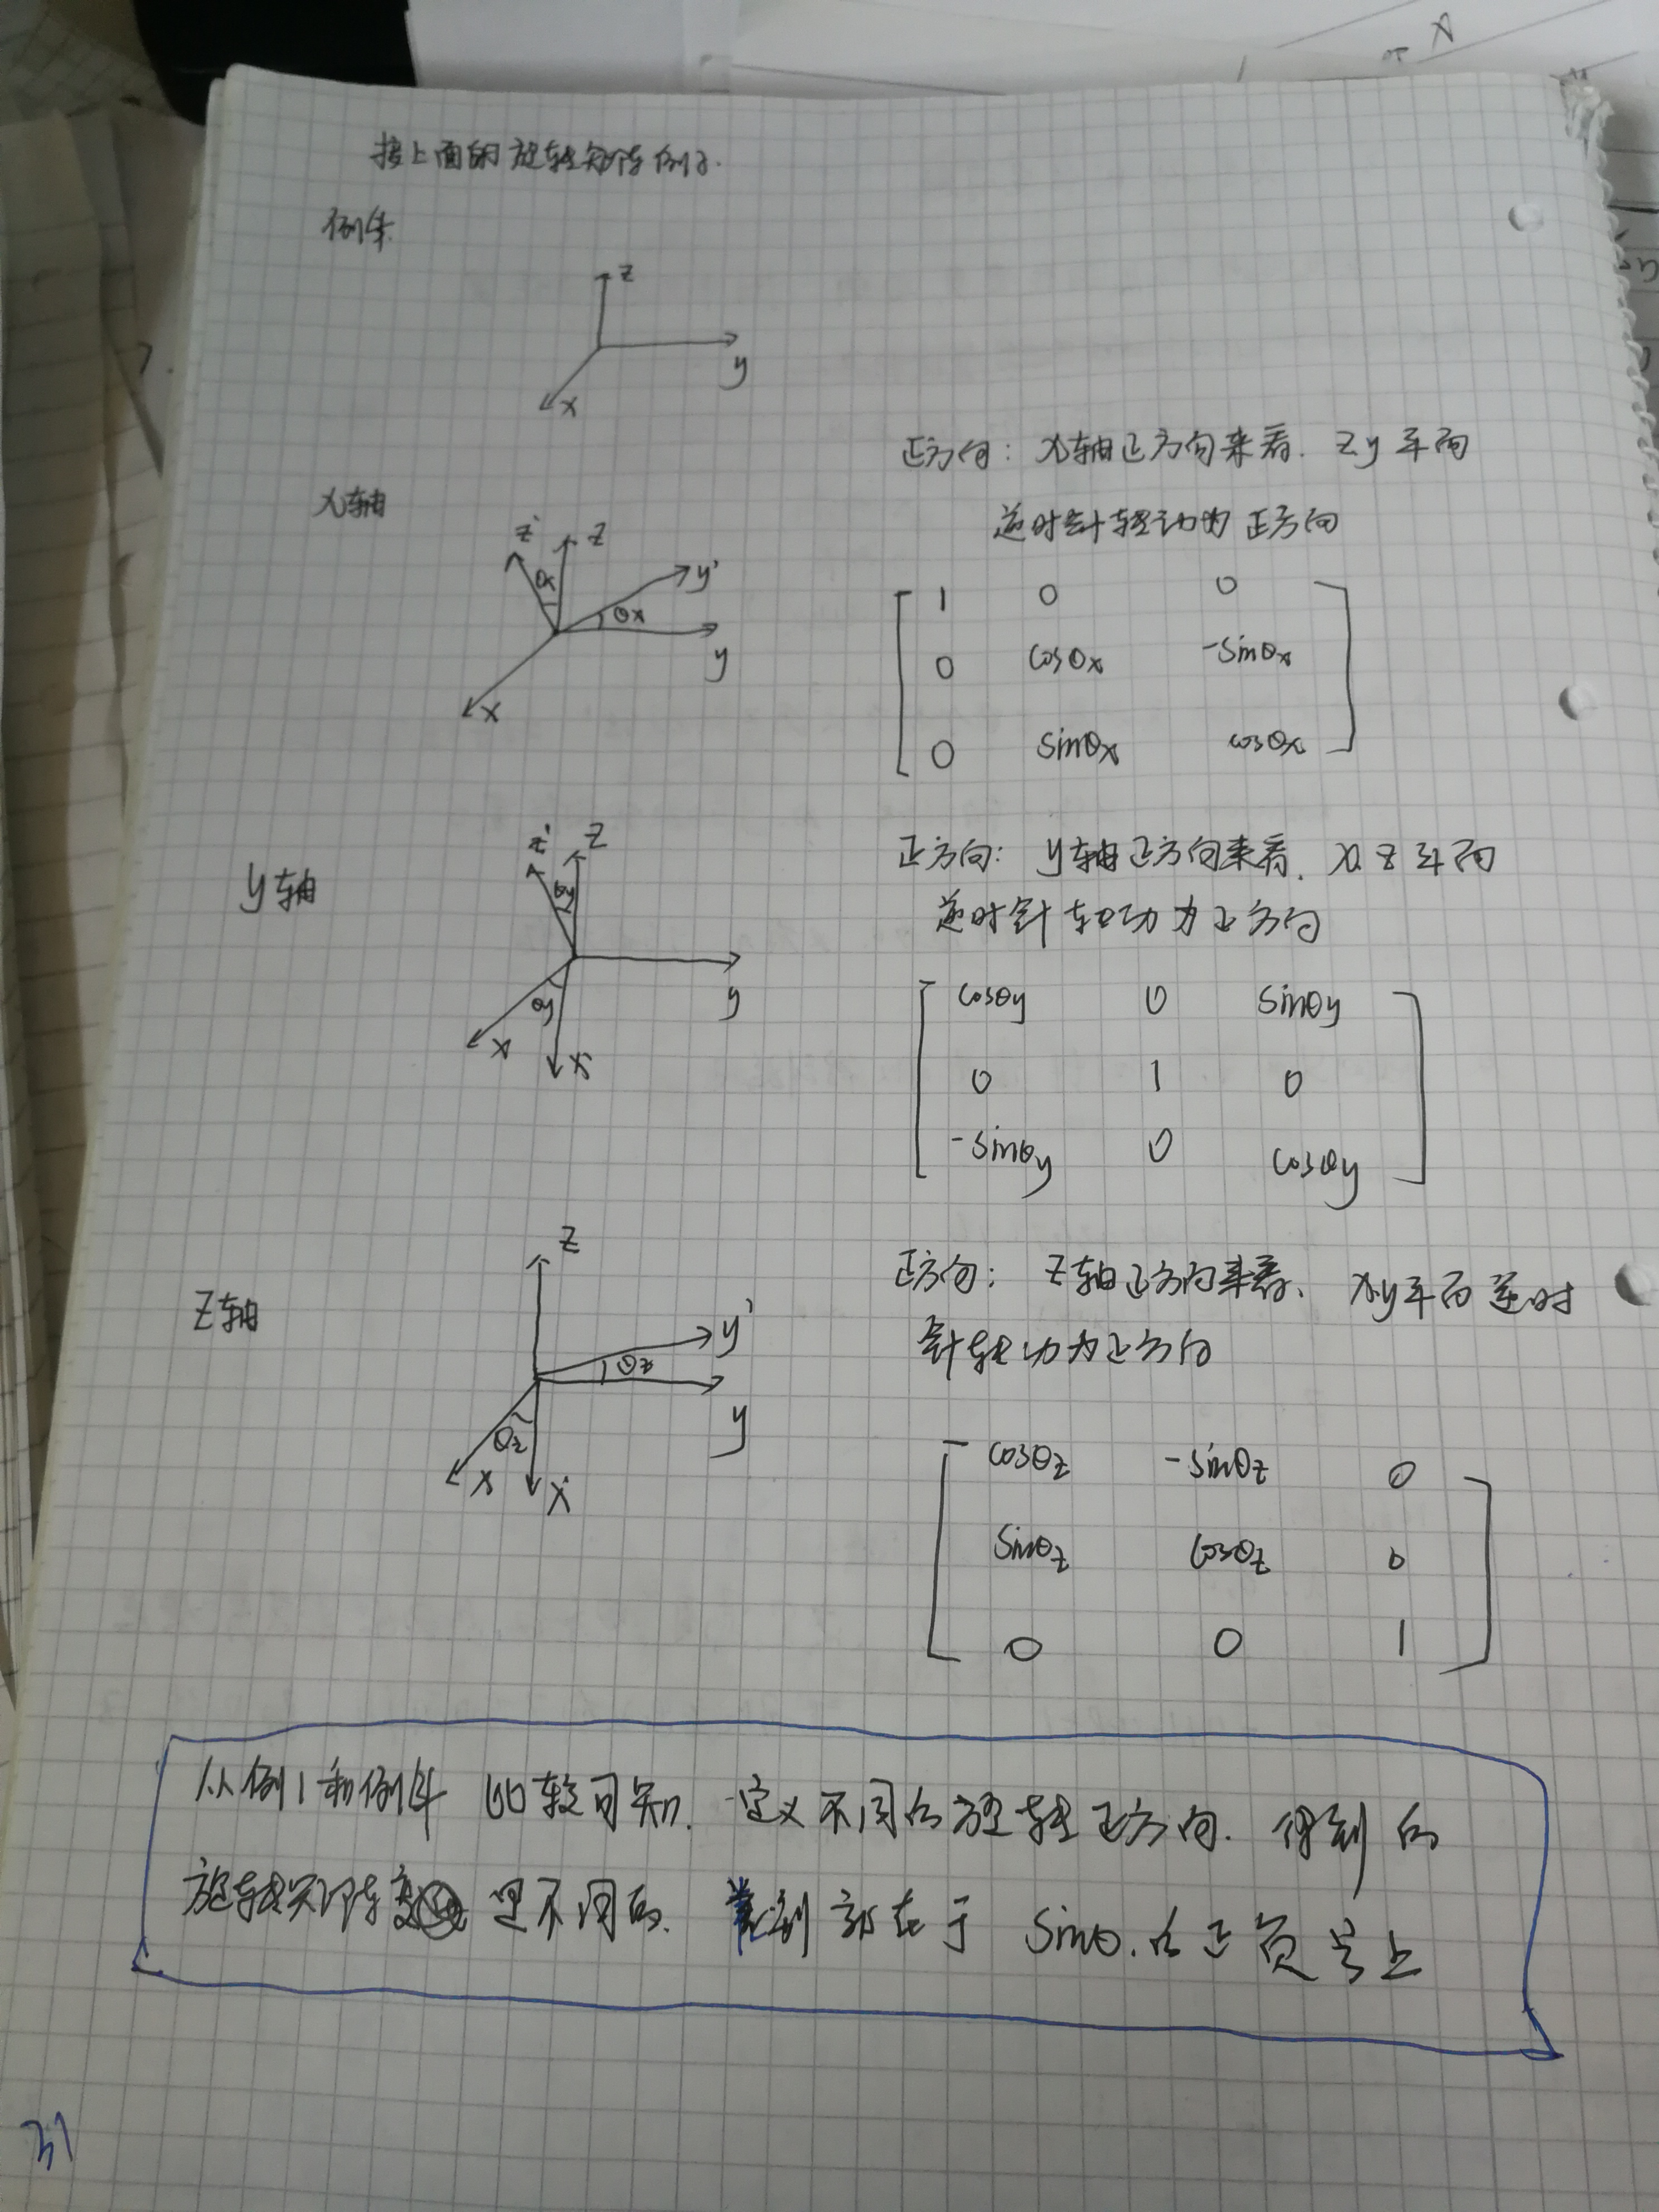 接上面的旋转矩阵例子.
例4:
z
y
x
x轴
z' z y'
θx θx
y
x
正方向: x轴正方向来看. zy平面
逆时针转动为正方向
1 0 0
0 cosθx -sinθx
0 sinθx cosθx
y轴
z' z
θy
θy y
x x'
正方向: y轴正方向来看. x z平面
逆时针转动为正方向
cosθy 0 sinθy
0 1 0
-sinθy 0 cosθy
z轴
z
y'
θz
y
θz
x x'
正方向: z轴正方向来看. xy平面逆时
针转动为正方向
cosθz -sinθz 0
sinθz cosθz 0
0 0 1
从例1和例4 比较可知. 定义不同的旋转正方向. 得到的
旋转矩阵 是不同的. 差别都在于 sinθ.的正负号上
31